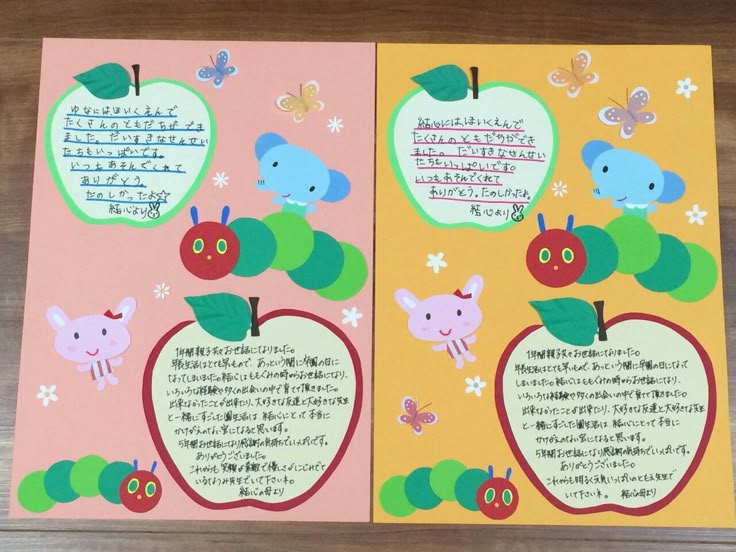 ゆなにはほいくえんで
たくさんのともだちができ
ました。だいすきなせんせい
たちもいっぱいです。
いつもあそんでくれて
ありがとう。
たのしかったよ☆
結心より
1年間親子共々お世話になりました。
月日はとても早いもので、あっという間に卒園の日に
なってしまいました。結心はももぐみの時からお世話になり、
いろいろな経験や多くの出会いの中で育って頂きました。
出来なかったことが出来たり、大好きな友達と大好きな先生
と一緒にすごした園生活は、結心にとって本当に
かけがえのない宝になると思います。
5年間お世話になり感謝の気持ちでいっぱいです。
ありがとうございました。
これからも笑顔が素敵で優しさ
いて下さいネ。
結心の母より
結心にはほいくえんで
たくさんのともだちができ
ました。だいすきなせんせい
たちもいっぱいです。
いつもあそんでくれて
ありがとう。たのしかったよ。
結心より
1年間親子共々お世話になりました。
園生活はとても早いもので、あっという間に卒園の日になって
しまいました。結心はももぐみの時からお世話になり、
いろいろな経験や多くの出会いの中で育って頂きました。
出来なかったことが出来たり、大好きな友達と大好きな先生
と一緒にすごした園生活は、結心にとって本当に
かけがえのない宝になると思います。
5年間お世話になり感謝の気持ちでいっぱいです。
ありがとうございました。
これからも明るく元気いっぱいのともえ先生で
いて下さいネ。 結心の母より